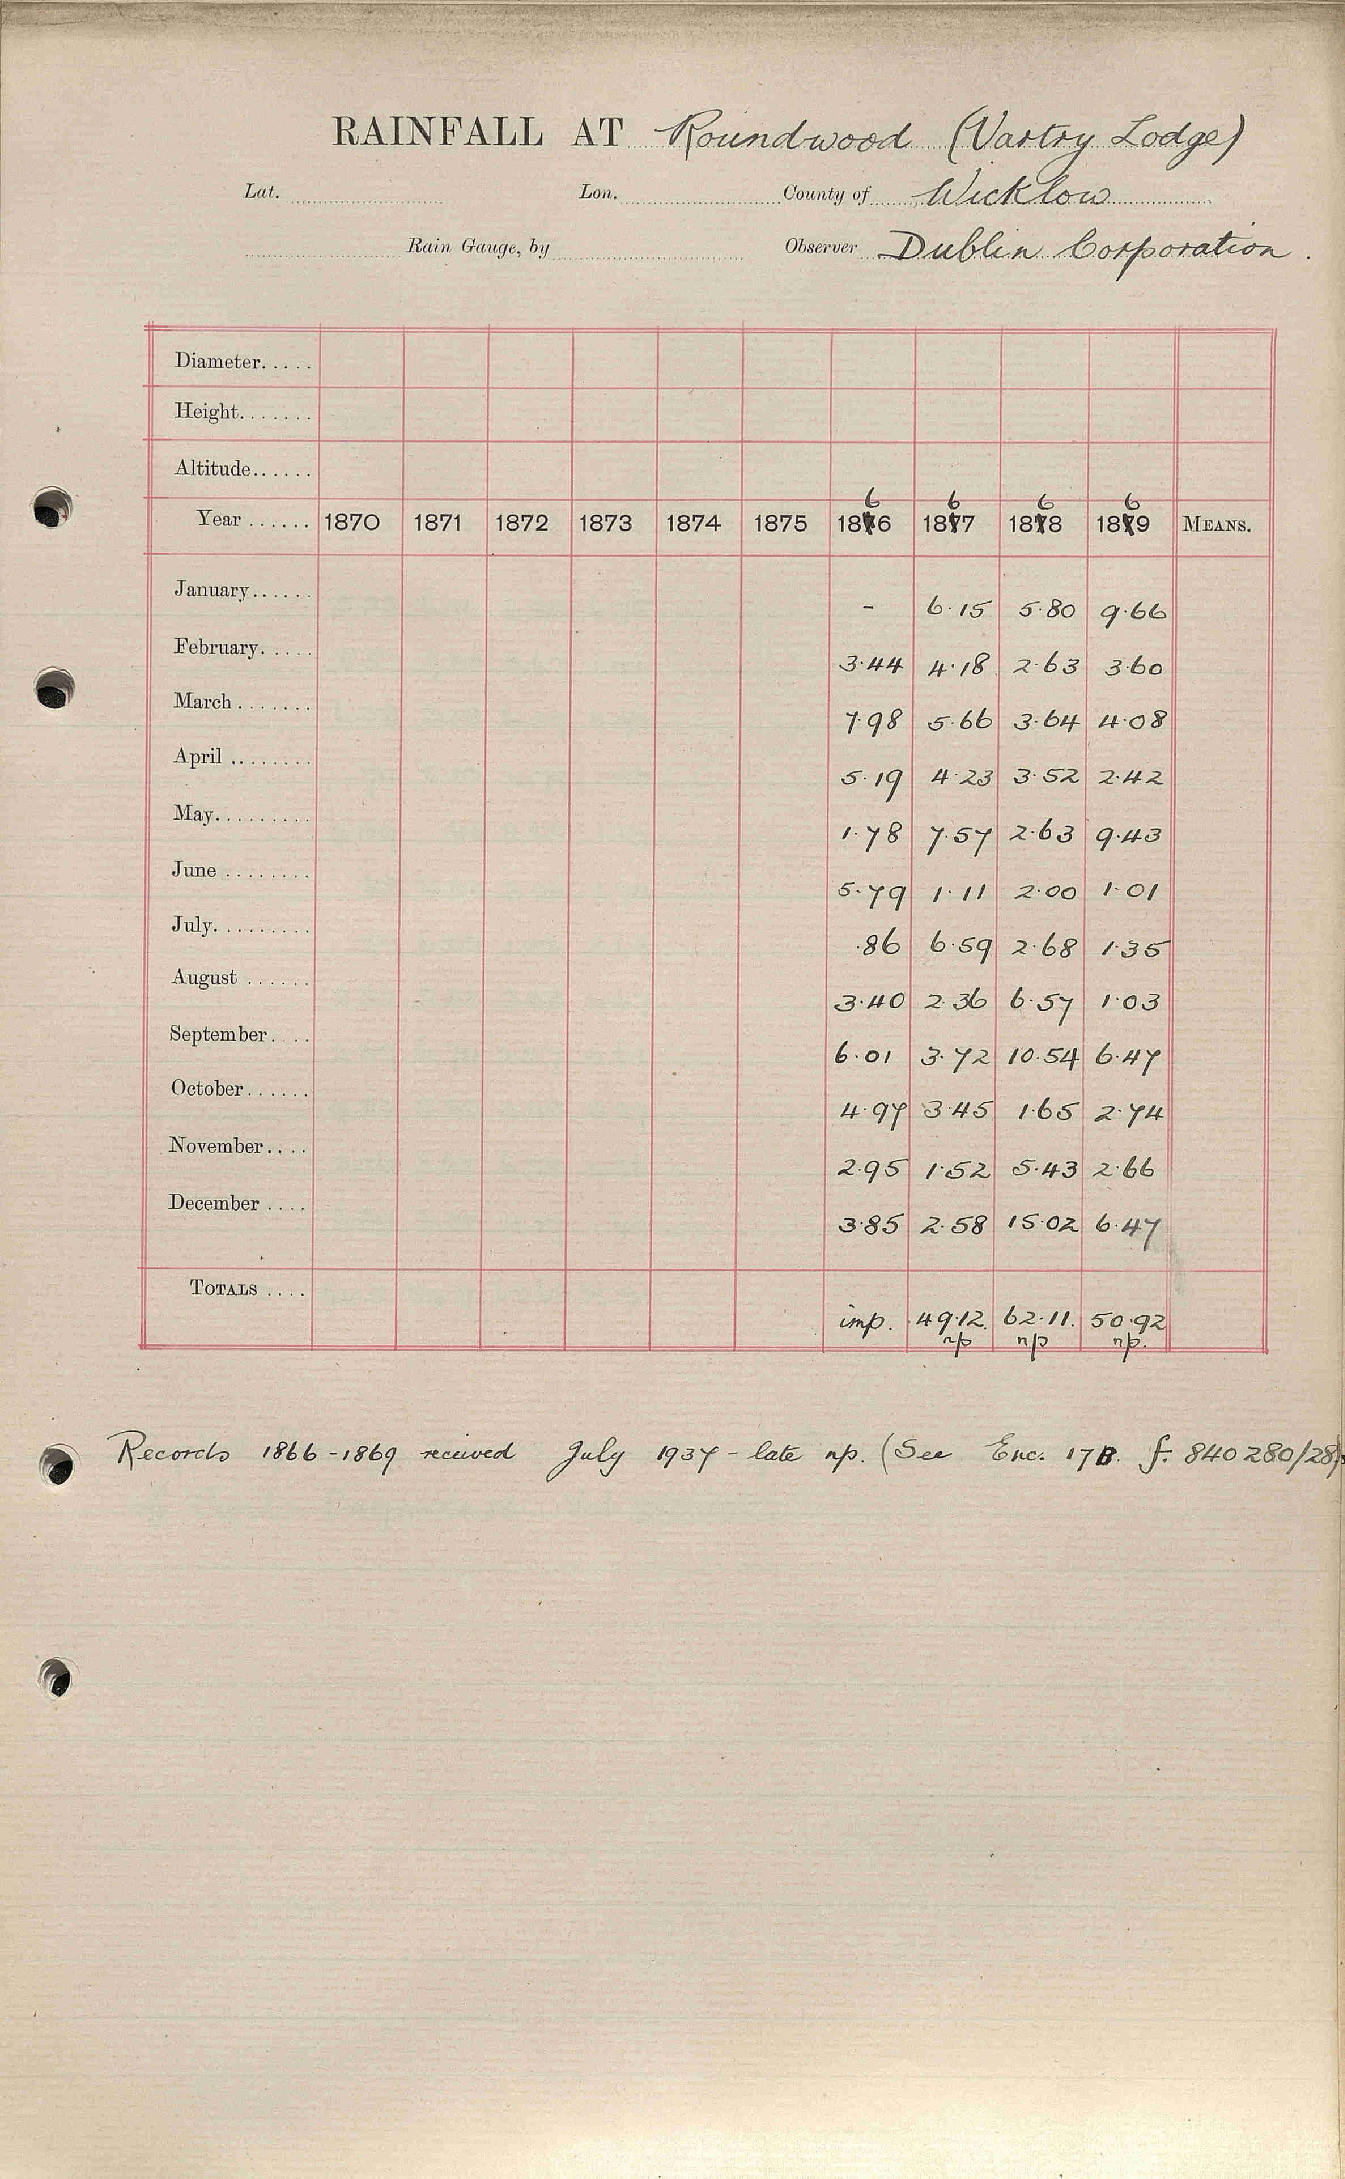 RAINFALL AT Roundwood (Vartry Lodge)
Lat. Lon. County of Wicklow
Rain Gauge, by Observer Dublin Corporation.
Diameter.....
Height.......
Altitude......
6 6 6 6
Year ...... 1870 1871 1872 1873 1874 1875 1876 1877 1878 1879 MEANS.
January......
- 6.15 5.80 9.66
February.....
3.44 4.18 2.63 3.60
March.......
7.98 5.66 3.64 4.08
April ........
5.19 4.23 3.52 2.42
May.........
1.78 7.57 2.63 9.43
June ........
5.79 1.11 2.00 1.01
July.........
.86 6.59 2.68 1.35
August ......
3.40 2.36 6.57 1.03
September....
6.01 3.72 10.54 6.47
October......
4.97 3.45 1.65 2.74
November....
2.95 1.52 5.43 2.66
December ....
3.85 2.58 15.02 6.47
TOTALS ....
imp. 49.12. 62.11. 50.92
np np np.
Records 1866-1869 received July 1937 - late np. (See Enc. 17B. f. 840280/28)